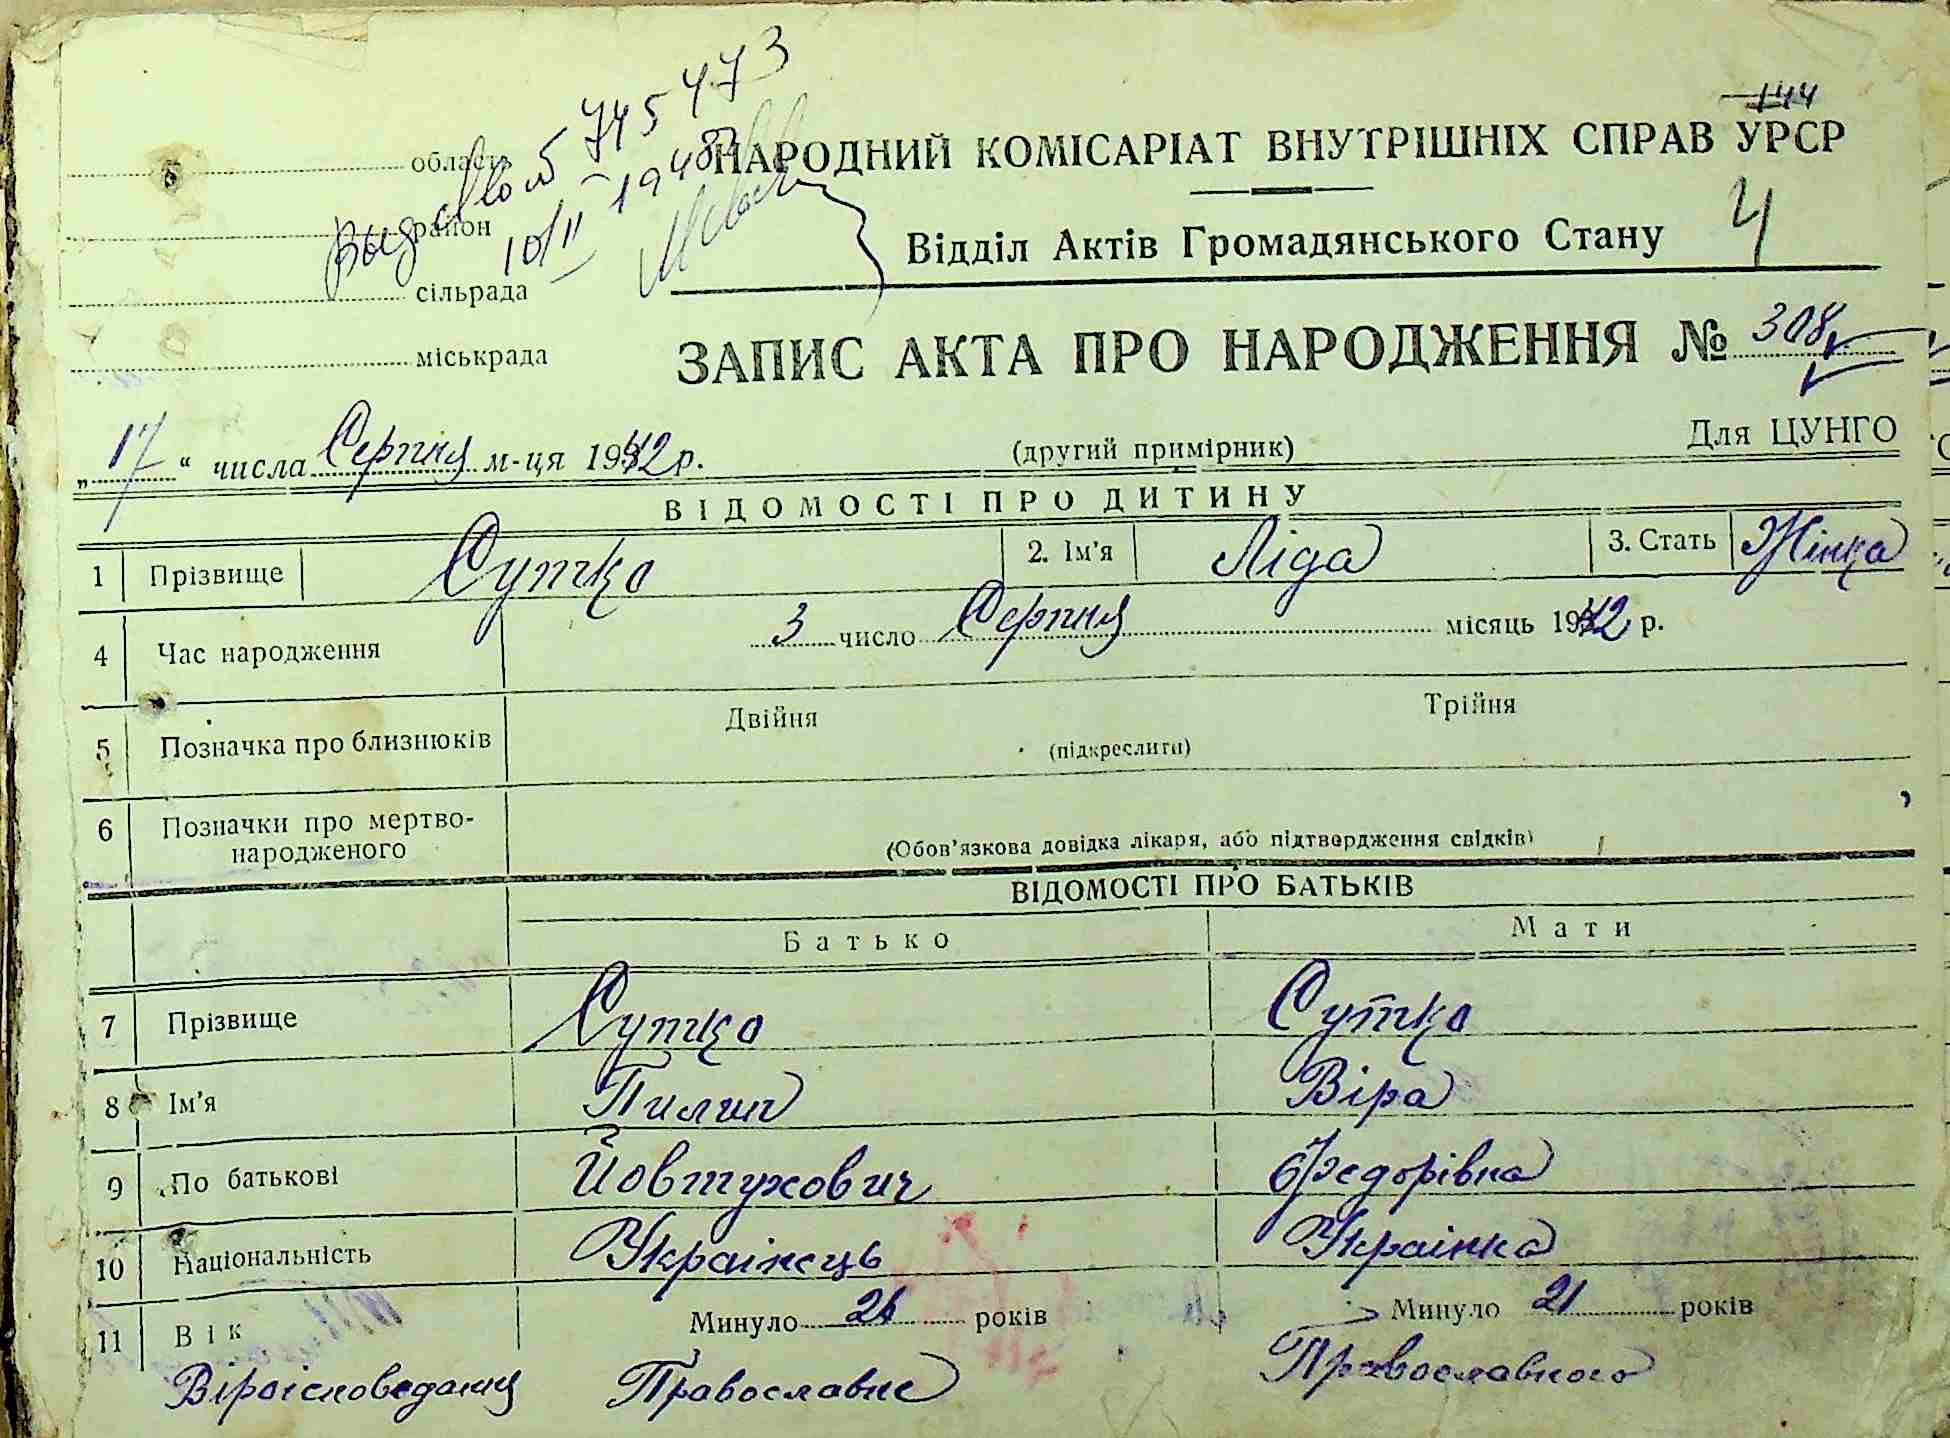 144
745473
область
НАРОДНИЙ КОМІСАРІАТ ВНУТРІШНІХ СПРАВ УРСР
район
10/II 1948
Відділ Актів Громадянського Стану
Ч
сільрада
міськрада
ЗАПИС АКТА ПРО НАРОДЖЕННЯ № 308
„17“ числа Серпня м-ця 1942 р.
(другий примірник)
Для ЦУНГО
ВІДОМОСТІ ПРО ДИТИНУ
1 Прізвище Сутко 2. Ім'я Ліда 3. Стать Жінка
4 Час народження 3 число Серпня місяць 1942 р.
5 Позначка про близнюків Двійня Трійня
(підкреслити)
6 Позначки про мертво-
народженого
(Обов'язкова довідка лікаря, або підтвердження свідків)
ВІДОМОСТІ ПРО БАТЬКІВ
Батько Мати
7 Прізвище Сутко Сутко
8 Ім'я Пилип Віра
9 По батькові Йовтухович Федорівна
10 Національність Украінець Украінка
11 Вік Минуло 26 років Минуло 21 років
Віроісповедания Православне Православного